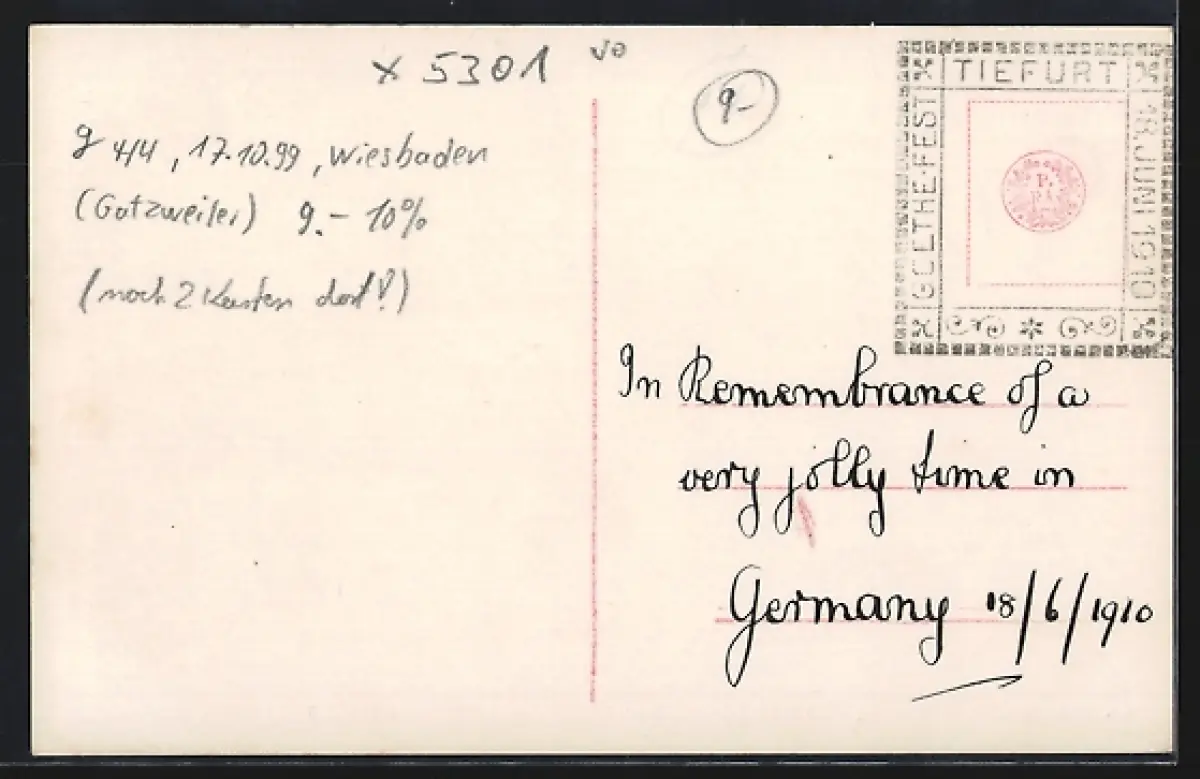 x 5301
9-
g 4/4, 17.10.99, Wiesbaden
(Gotzweiler) 9.- 10%
(noch 2 Karten dort!)
TIEFURT
GOETHE-FEST
18. JUNI 1910
In Remembrance of a
very jolly time in
Germany 18/6/1910